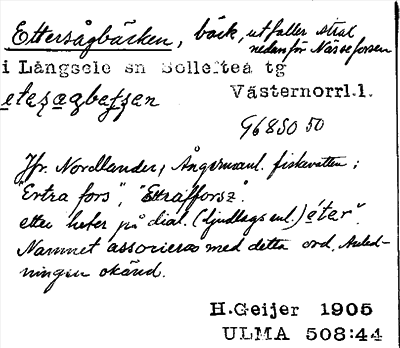 Ettersågbäcken, bäck, utfaller strax
nedanför Näseforsen
i Långsele sn Sollefteå tg
Västernorrl.l.
96850 50
Jfr. Nordlander, Ångermanl. fiskevatten:
"Ertra fors", "Etträfforsz".
etter heter på dial. (ljudlags enl.) éter".
Namnet associeras med detta ord. Anled-
ningen okänd.
H.Geijer 1905
ULMA 508:44